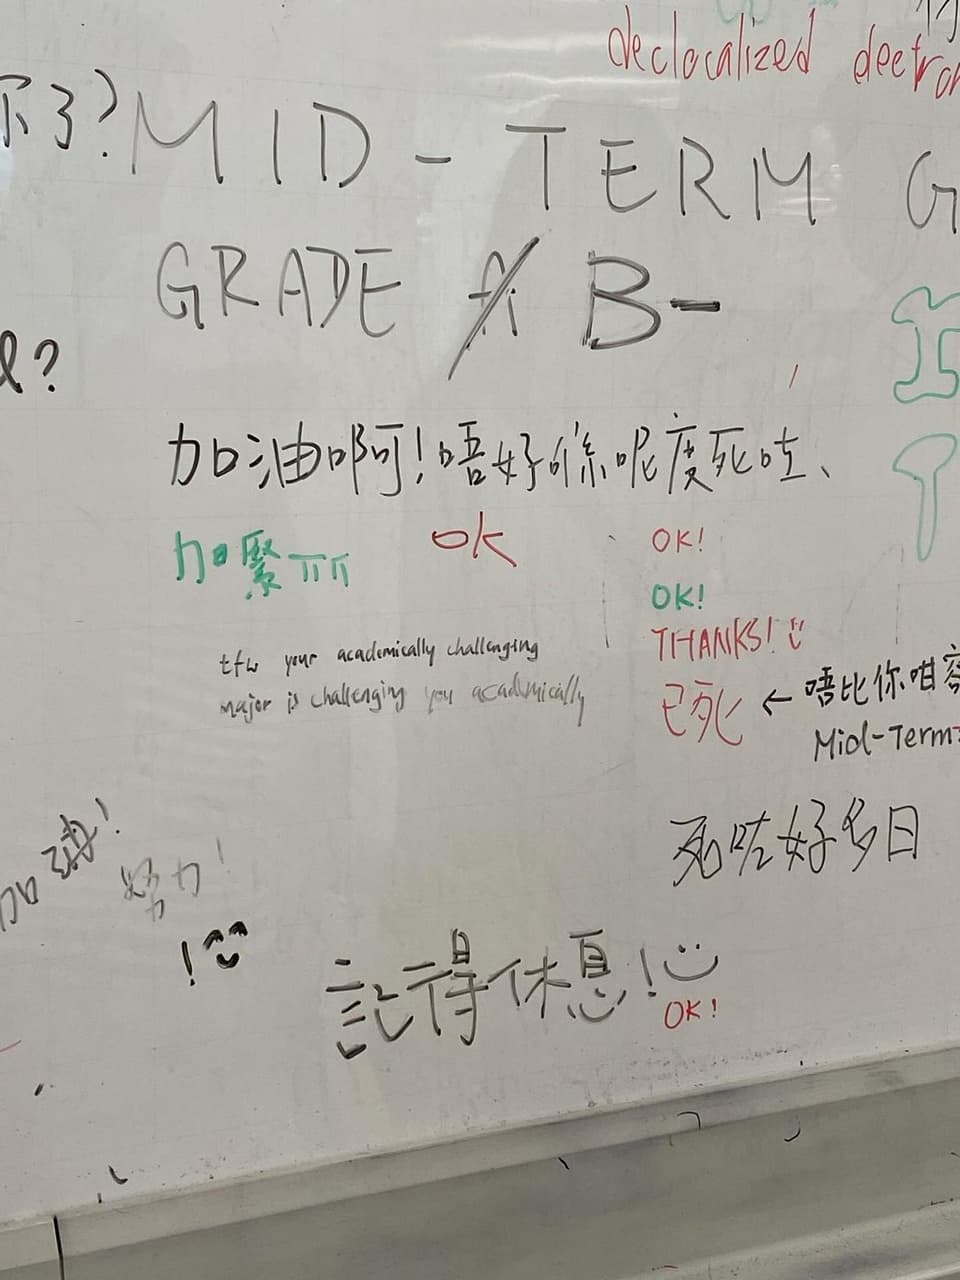 declocalized
不了?
MID-TERM G
GRADE A B-
?
加油啊!唔好係呢度死咗、
加緊 OK OK!
OK!
THANKS!
tfw your academically challenging
major is challenging you academically
已死 ← 唔比你咁容
Mid-Term
死咗好多日
加油!
努力!
!
記得休息!
OK!